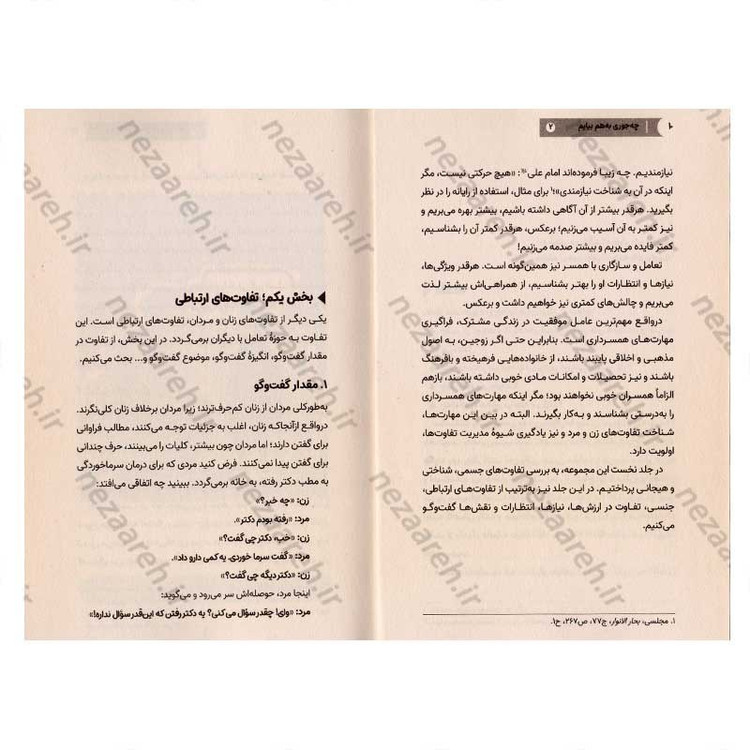 ۱۰ | چه‌جوری به‌هم بیایم ۲
نیازمندیم. چه زیبا فرموده‌اند امام علی: «هیچ حرکتی نیست، مگر
اینکه در آن به شناخت نیازمندی»؛۱ برای مثال، استفاده از رایانه را در نظر
بگیرید. هرقدر بیشتر از آن آگاهی داشته باشیم، بیشتر بهره می‌بریم و
نیز کمتر به آن آسیب می‌زنیم؛ برعکس، هرقدر کمتر آن را بشناسیم،
کمتر فایده می‌بریم و بیشتر صدمه می‌زنیم!
تعامل و سازگاری با همسر نیز همین‌گونه است. هرقدر ویژگی‌ها،
نیازها و انتظارات او را بهتر بشناسیم، از همراهی‌اش بیشتر لذت
می‌بریم و چالش‌های کمتری نیز خواهیم داشت و برعکس.
درواقع مهم‌ترین عامل موفقیت در زندگی مشترک، فراگیری
مهارت‌های همسرداری است. بنابراین حتی اگر زوجین، به اصول
مذهبی و اخلاقی پایبند باشند، از خانواده‌هایی فرهیخته و بافرهنگ
باشند و نیز تحصیلات و امکانات مادی خوبی داشته باشند، بازهم
الزاماً همسران خوبی نخواهند بود؛ مگر اینکه مهارت‌های همسرداری
را به‌درستی بشناسند و به‌کار بگیرند. البته در بین این مهارت‌ها،
شناخت تفاوت‌های زن و مرد و نیز یادگیری شیوهٔ مدیریت تفاوت‌ها،
اولویت دارد.
در جلد نخست این مجموعه، به بررسی تفاوت‌های جسمی، شناختی
و هیجانی پرداختیم. در این جلد نیز به‌ترتیب از تفاوت‌های ارتباطی،
جنسی، تفاوت در ارزش‌ها، نیازها، انتظارات و نقش‌ها گفت‌وگو
می‌کنیم.
۱. مجلسی، بحار الانوار، ج۷۷، ص۲۶۷، ح۱.
بخش یکم؛ تفاوت‌های ارتباطی
یکی دیگر از تفاوت‌های زنان و مردان، تفاوت‌های ارتباطی است. این
تفاوت به حوزهٔ تعامل با دیگران برمی‌گردد. در این بخش، از تفاوت در
مقدار گفت‌وگو، انگیزهٔ گفت‌وگو، موضوع گفت‌وگو و... بحث می‌کنیم.
۱. مقدار گفت‌وگو
به‌طورکلی مردان از زنان کم‌حرف‌ترند؛ زیرا مردان برخلاف زنان کلی‌نگرند.
درواقع ازآنجاکه زنان، اغلب به جزئیات توجه می‌کنند، مطالب فراوانی
برای گفتن دارند؛ اما مردان چون بیشتر، کلیات را می‌بینند، حرف چندانی
برای گفتن پیدا نمی‌کنند. فرض کنید مردی که برای درمان سرماخوردگی
به مطب دکتر رفته، به خانه برمی‌گردد. ببینید چه اتفاقی می‌افتد:
زن: «چه خبر؟»
مرد: «رفته بودم دکتر».
زن: «خب، دکتر چی گفت؟»
مرد: «گفت سرما خوردی. یه کمی دارو داد».
زن: «دکتر دیگه چی گفت؟»
اینجا مرد، حوصله‌اش سر می‌رود و می‌گوید:
مرد: «وای! چقدر سؤال می‌کنی؟ یه دکتر رفتن که این‌قدر سؤال نداره!»
nezaareh.ir
nezaareh.ir
nezaareh.ir
nezaareh.ir
nezaareh.ir
nezaareh.ir
nezaareh.ir
nezaareh.ir
nezaareh.ir